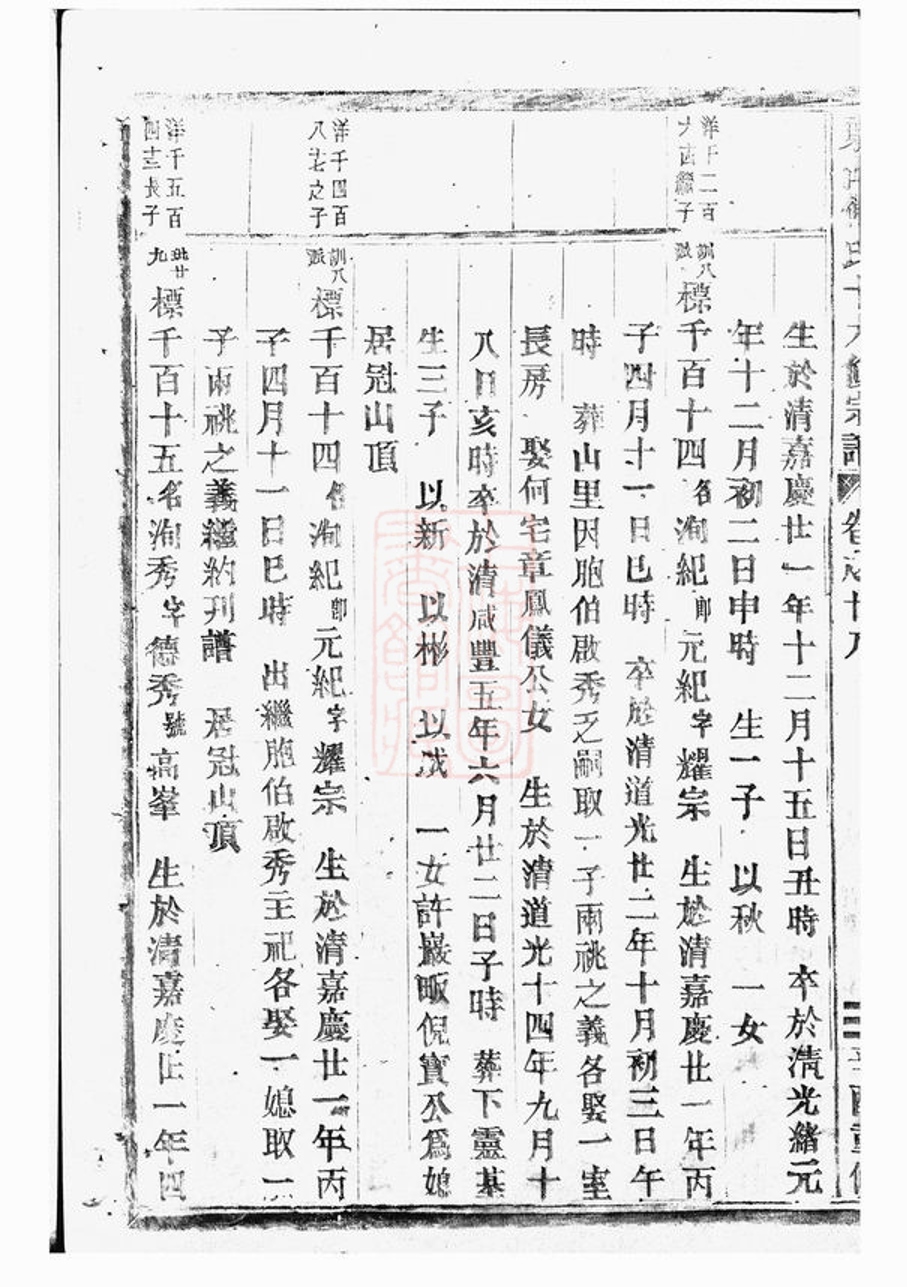 生於清嘉慶廿一年十二月十五日丑時 卒於清光緒元
年十二月初二日申時 生一子 以秋 一女
洋千二百
繼子
訓八
派
標千百十四名洵紀 元紀字耀宗 生於清嘉慶廿一年丙
子四月十一日巳時 卒於清道光廿二年十月初三日午
時 葬山里因胞伯啟秀乏嗣取一子兩祧之義各娶一室
長房 娶何宅章鳳儀公女 生於清道光十四年九月十
八日亥時卒於清咸豐五年六月廿二日子時 葬下靈基
生三子 以新 以彬 以成 一女許巖畈倪寶公為媳
居冠山頂
洋千四百
八七之子
訓八
派
標千百十四名洵紀 元紀字耀宗 生於清嘉慶廿一年丙
子四月十一日巳時 出繼胞伯啟秀主祀各娶一媳取一
子兩祧之義繼約刊譜 居冠山頂
洋千五百
四十二長子
九
標千百十五名洵秀字德秀號高峯 生於清嘉慶廿一年四